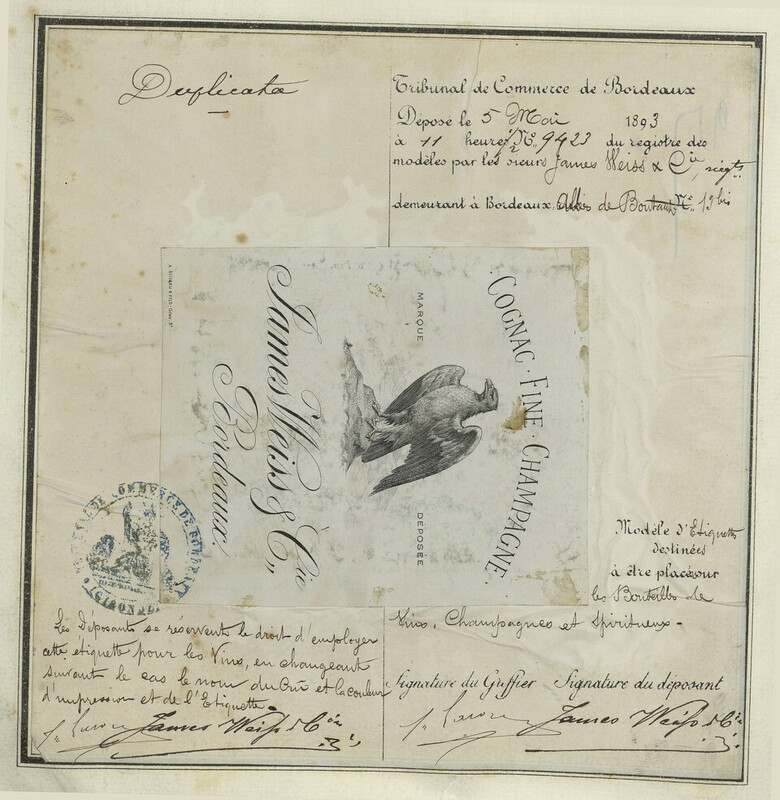 Duplicata
Tribunal de Commerce de Bordeaux
Déposé le 5 Mai 1893
à 11 heures ½ Nº 9423 du registre des
modèles par les sieurs James Weiss & Cie, négts
demeurant à Bordeaux, de Boutaut Nº 19 bis
COGNAC · FINE · CHAMPAGNE.
MARQUE DÉPOSÉE
James Weiss & Cie
Bordeaux.
TRIBUNAL DE COMMERCE DE BORDEAUX
(GIRONDE)
Modèle d'Etiquette
destinées
à être placé sur
les Bouteilles de
Vins, Champagnes et Spiritueux -
Les Déposants se réservent le droit d'employer
cette étiquette pour les Vins, en changeant
suivant le cas le nom du Crû et la couleur
d'impression et de l'Etiquette.
Signature du Greffier Signature du déposant
James Weiss & Cie
James Weiss & Cie